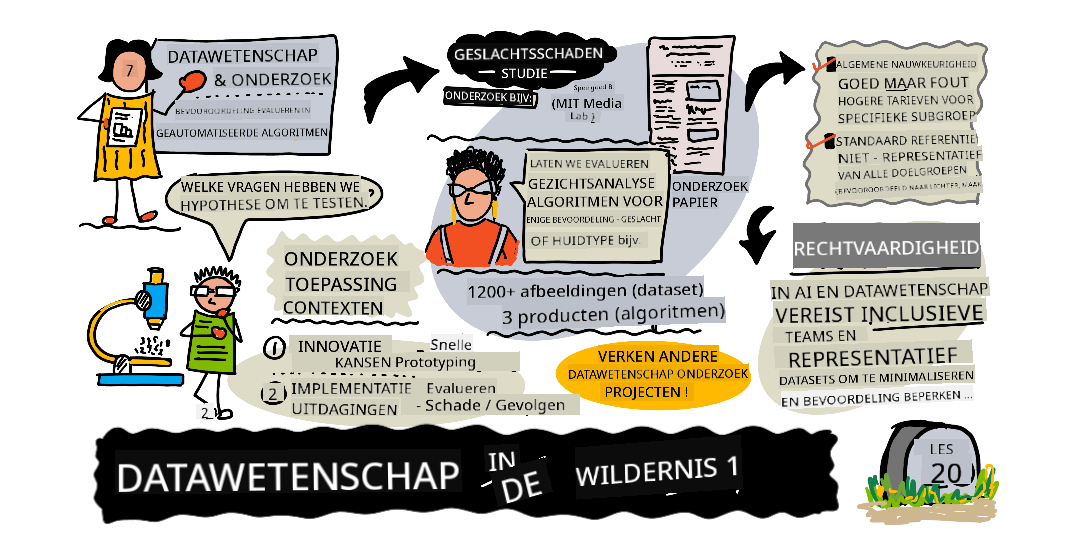 7
DATAWETENSCHAP
& ONDERZOEK
BEVOOROORDELING EVALUEREN IN
GEAUTOMATISEERDE ALGORITMEN
WELKE VRAGEN HEBBEN WE ,
HYPOTHESE OM TE TESTEN.
ONDERZOEK
TOEPASSING
CONTEXTEN
1 INNOVATIE - Snelle
KANSEN Prototyping
2 IMPLEMENTATIE Evalueren
UITDAGINGEN - Schade / Gevolgen
2
GESLACHTSSCHADEN
STUDIE
ONDERZOEK BIJV:
(MIT Media
Lab }
LATEN WE EVALUEREN
GEZICHTSANALYSE
ALGORITMEN VOOR
ENIGE BEVOORDELING - GESLACHT
OF HUIDTYPE bijv.
ONDERZOEK
PAPIER
1200+ afbeeldingen (dataset)
3 producten (algoritmen)
VERKEN ANDERE
DATAWETENSCHAP ONDERZOEK
PROJECTEN !
ALGEMENE NAUWKEURIGHEID
GOED MAAR FOUT
HOGERE TARIEVEN VOOR
SPECIFIEKE SUBGROEP
STANDAARD REFERENTIE
NIET - REPRESENTATIEF
VAN ALLE DOELGROEPEN
(BEVOOROORDEELD NAAR LICHTER, MAAK
RECHTVAARDIGHEID
IN AI EN DATAWETENSCHAP
VEREIST INCLUSIEVE
TEAMS EN
REPRESENTATIEF
DATASETS OM TE MINIMALISEREN
EN BEVOORDELING BEPERKEN ...
DATAWETENSCHAP IN DE WILDERNIS 1
LES
20